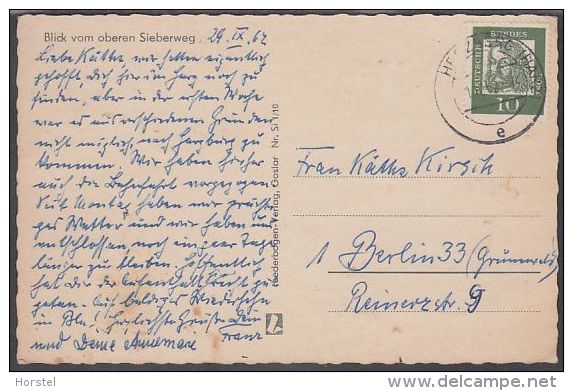 Blick vom oberen Sieberweg
29. IX. 62
Liebe Käthe, wir hatten eigentlich
gehofft, dich hier im Harz noch zu
finden, aber in der ersten Woche
war es aus verschiedenen Gründen
nicht möglich, nach Harzburg zu
kommen. Wir haben bisher
auch die Bahnfahrt vorgezogen
Seit Montag haben wir präch
ges Wetter und wir haben uns
entschlossen, noch ein paar Tage
länger zu bleiben. Hoffentlich
hat dir der Aufenthalt recht gut
getan. Auf baldiges Wiedersehen
in Bln! Herzlichste Grüße Dein
und Deine Annemarie Franz
Fiederbogen-Verlag, Goslar Nr. St 1/10
DEUTSCHE BUNDES
10
HERZBERG
e
Frau Käthe Kirsch
1 Berlin 33 (Grunewald)
Reinerzstr. 9
Horstel
© delcampe.net